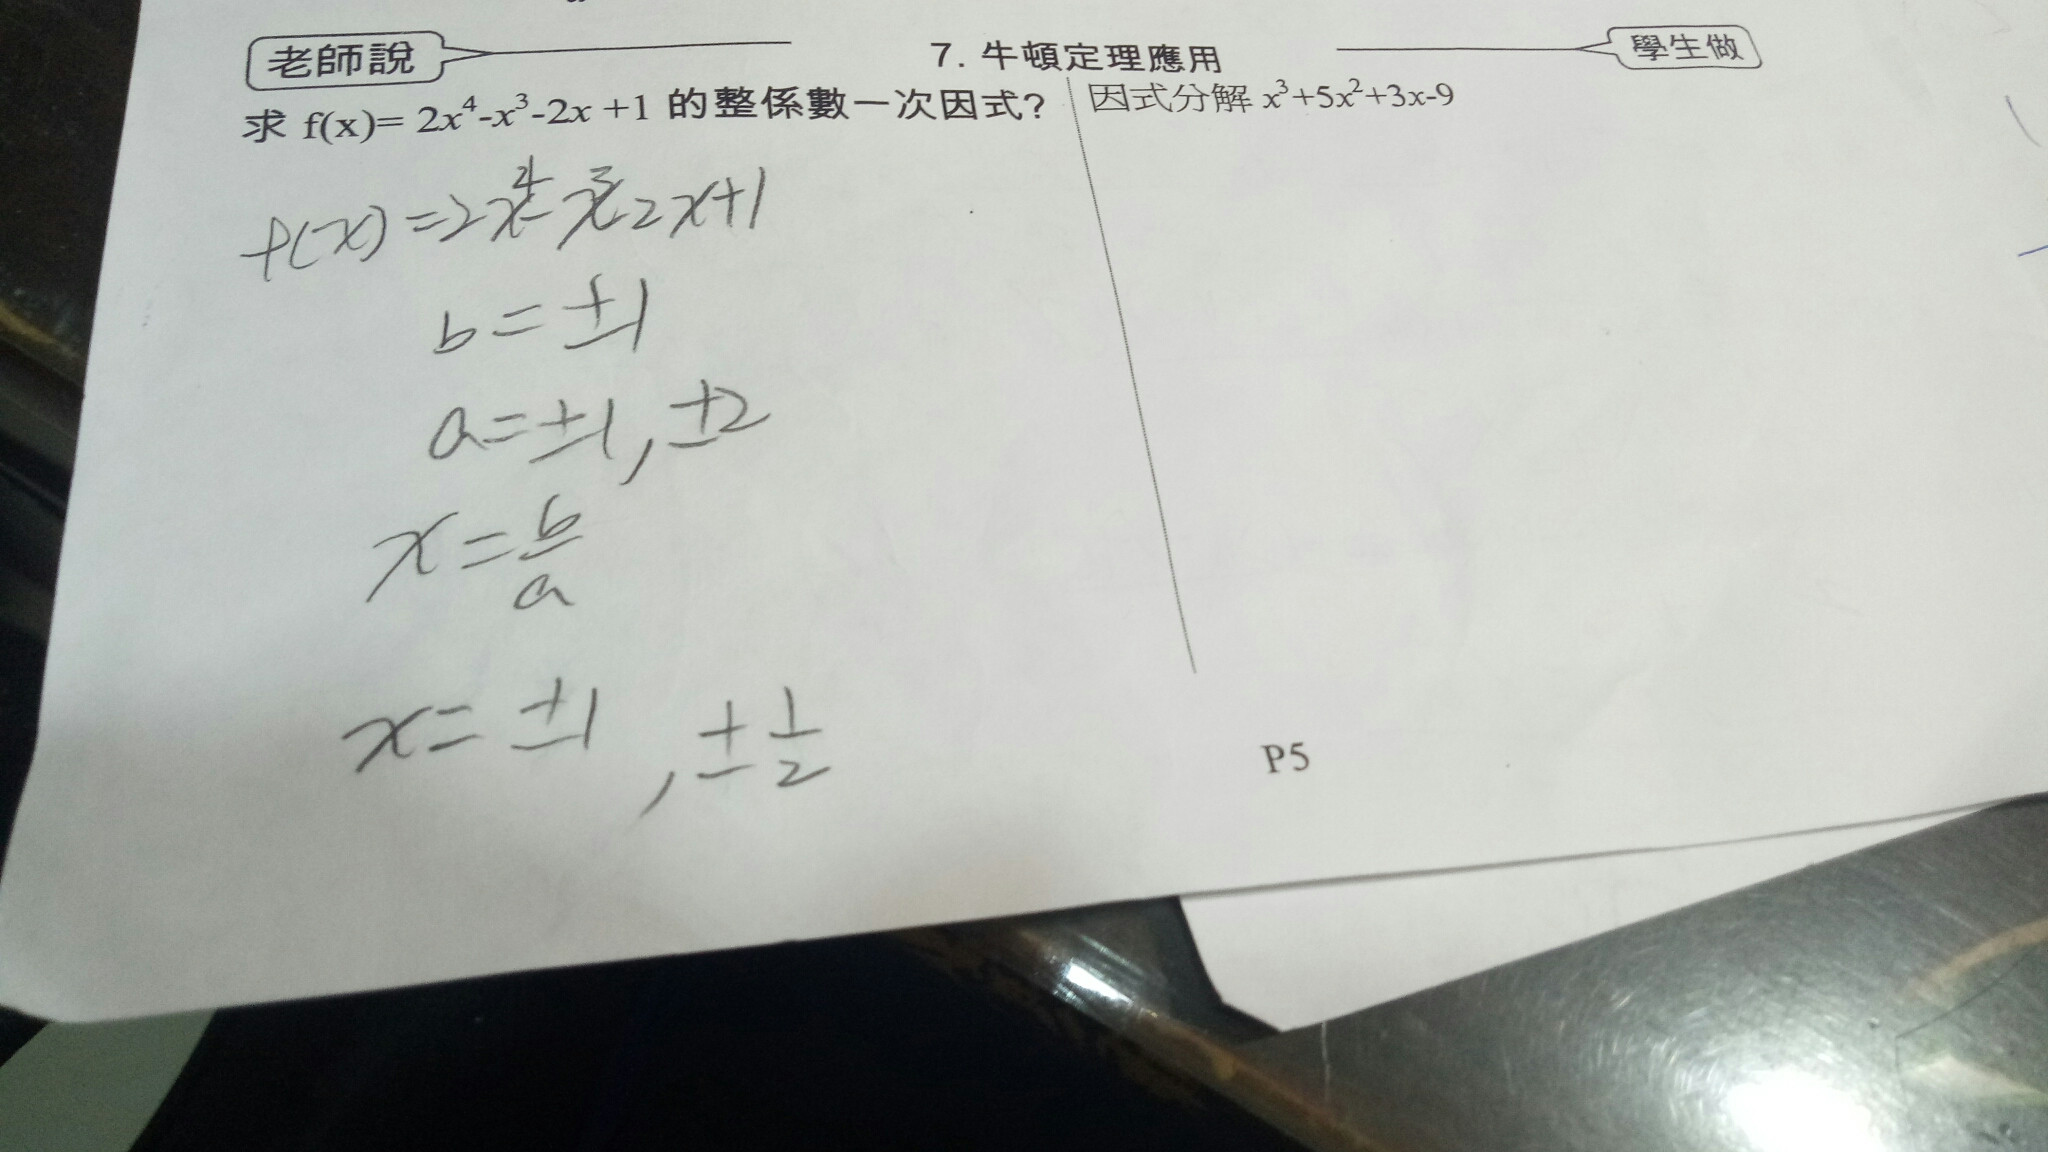 老師說
7. 牛頓定理應用
學生做
求 f(x)= 2x⁴-x³-2x +1 的整係數一次因式?
f(x)=2x⁴-x³-2x+1
b=±1
a=±1,±2
x=b/a
x=±1,±1/2
因式分解 x³+5x²+3x-9
P5